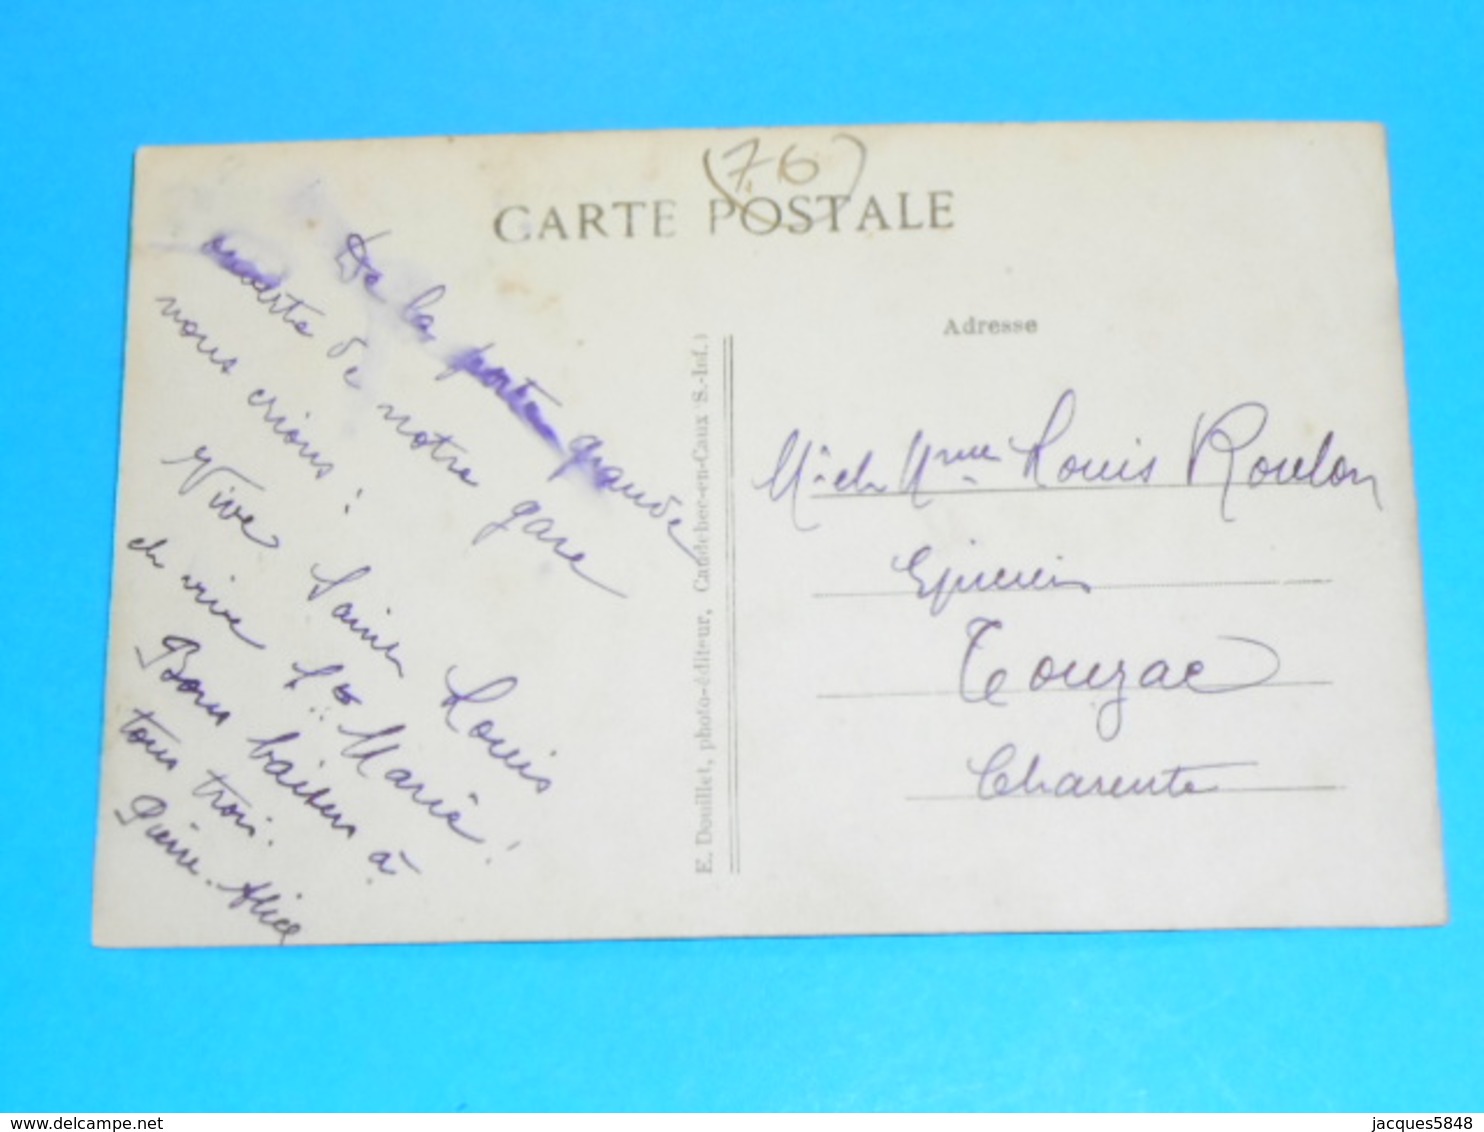 (76)
CARTE POSTALE
De la porte grande
ouverte de notre gare
nous crions :
Vive Saint Louis
et vive Ste Marie !
Bons baisers à
tous trois.
Pierre. Alice
E. Douillet, photo-éditeur, Caudebec-en-Caux S.-Inf.)
Adresse
Mr et Mme Louis Roulon
Touzac
Charente
www.delcampe.net
jacques5848